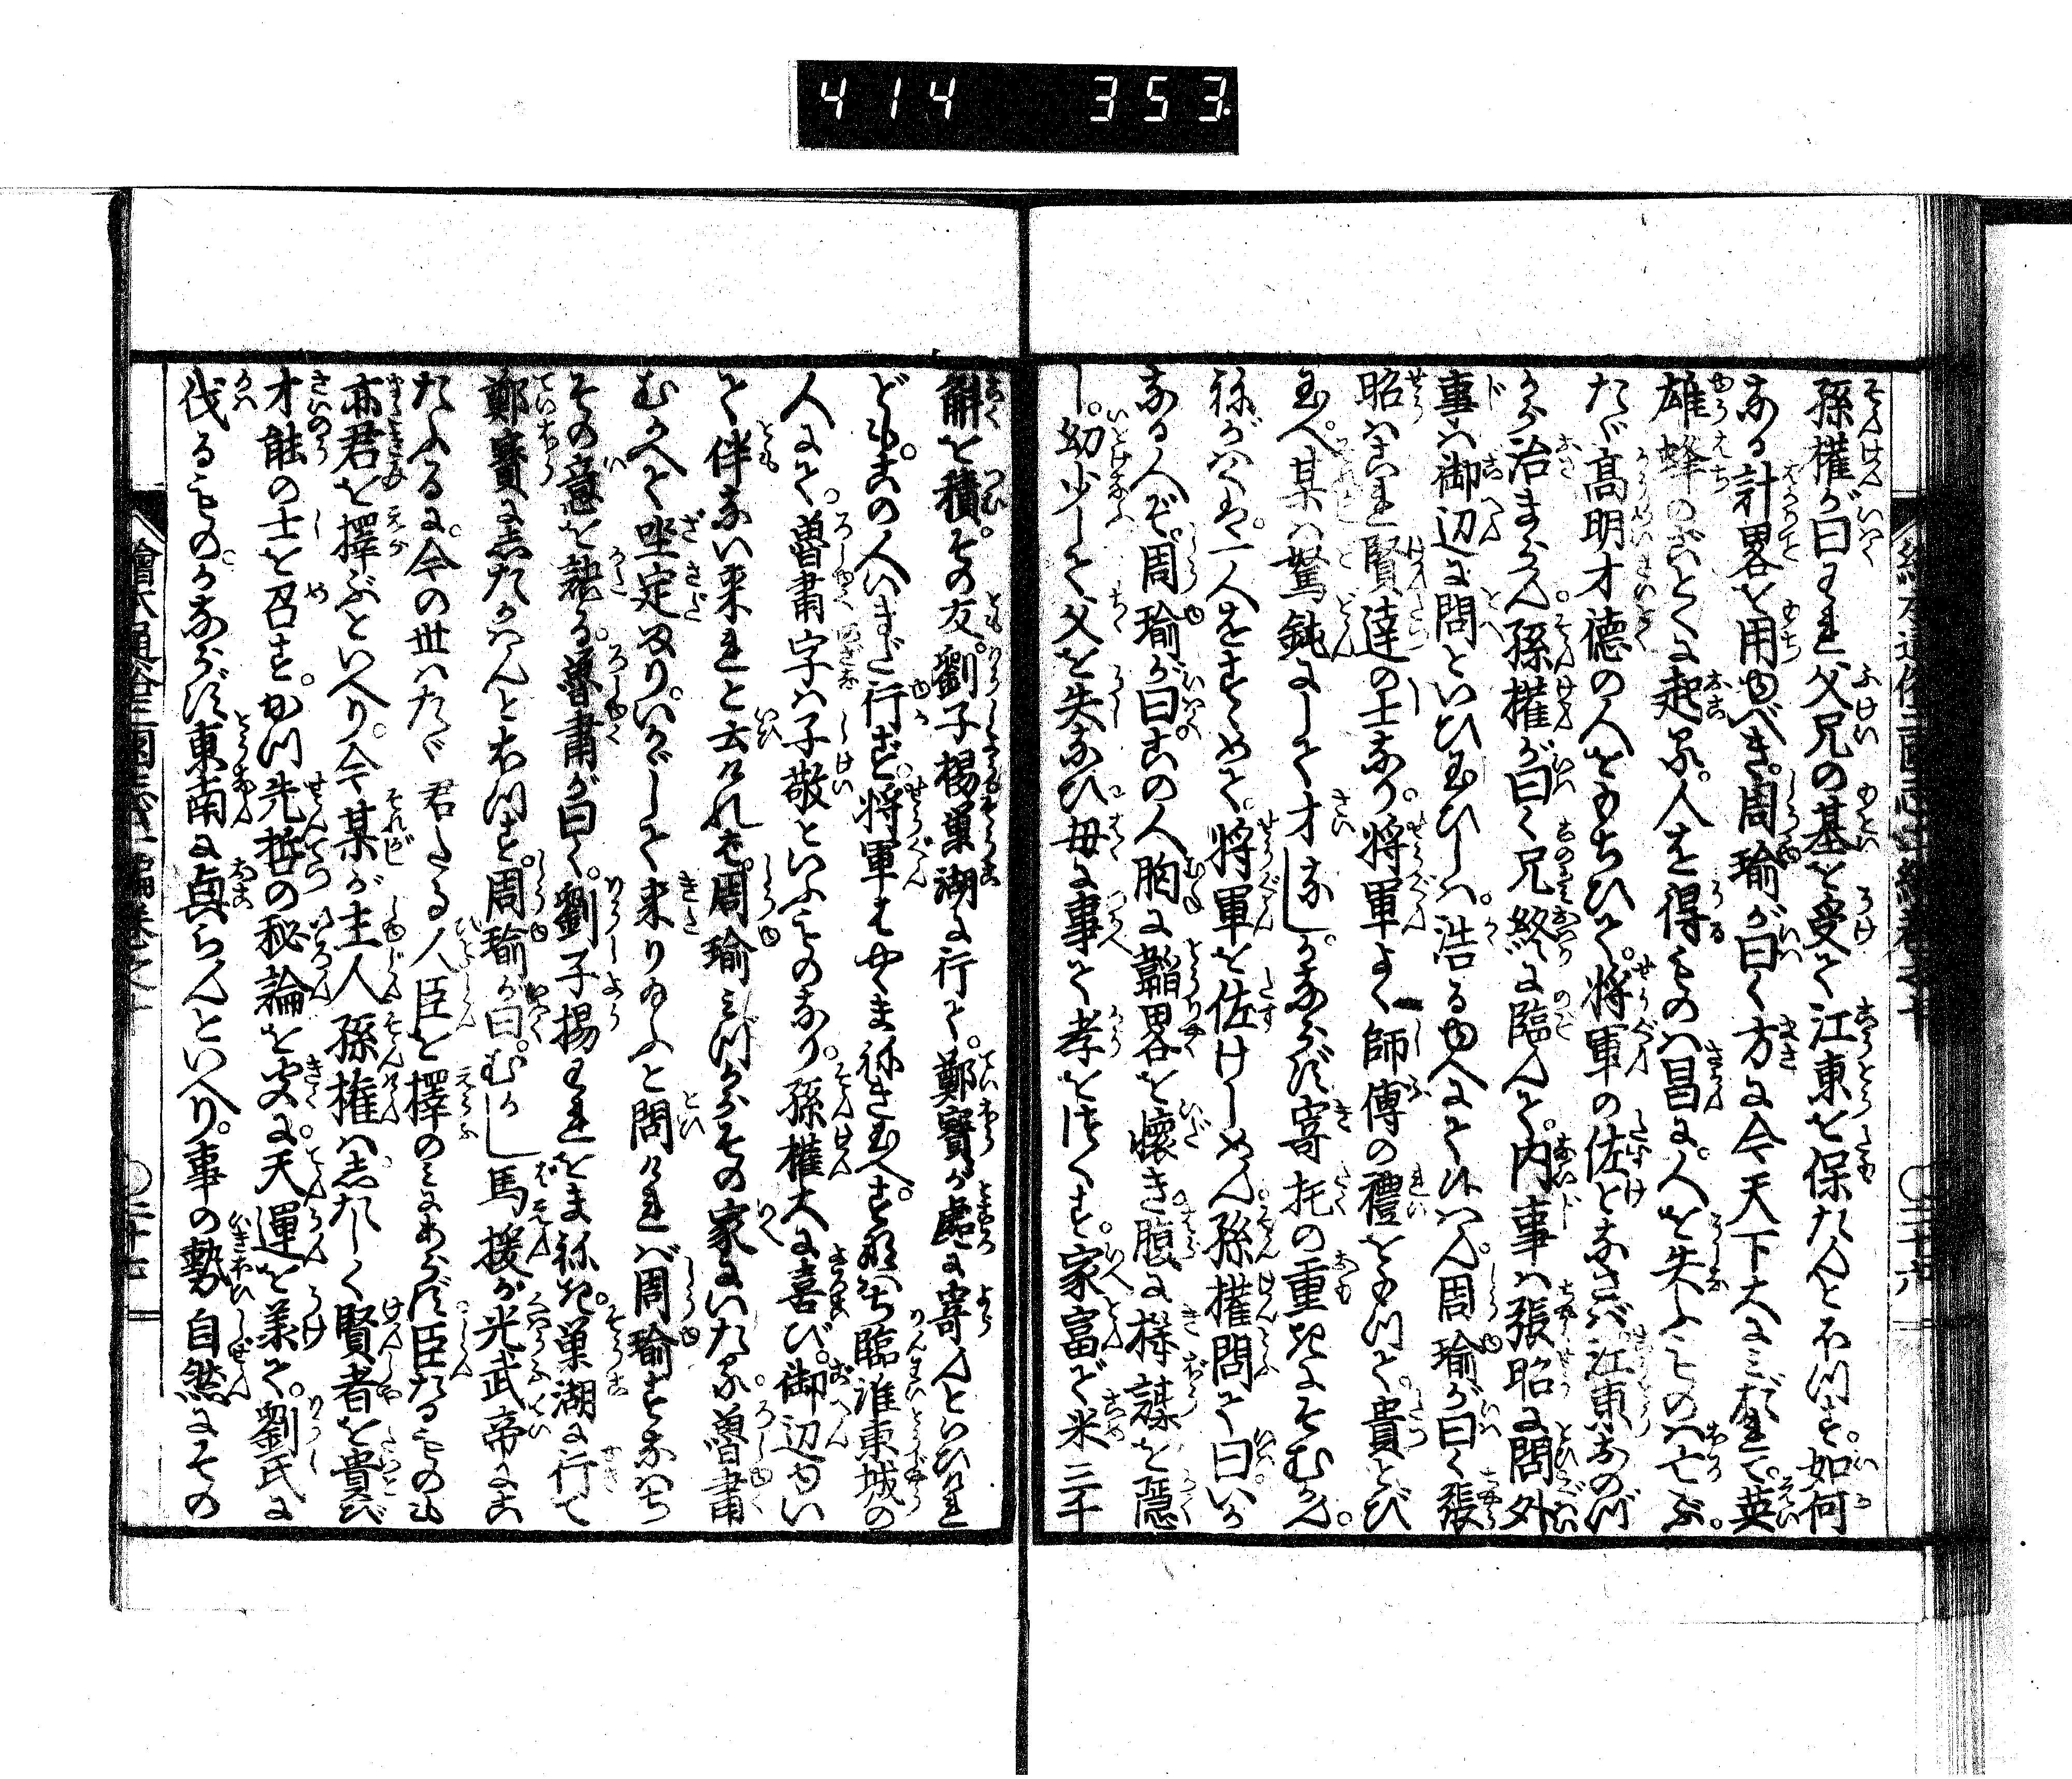 414 353
孫權が曰われ父兄の基を受て江東を保たんと不つす如何
なる計畧を用ゆべき周瑜が曰く方に今天下大にみだれて英
雄蜂のごとくに起る人を得るものハ昌に人を失ふものハ亡ぶ
たゞ高明才徳の人をもちひて将軍の佐となさバ江東ハおのづ
から治まらん孫權が曰く兄終に臨んで内事ハ張昭に問外
事ハ御辺に問といひ玉ひしハ浩るゆへにて候ハん周瑜が曰く張
昭ハこれ賢達の士なり将軍よく師傅の禮をもつて貴とび
玉へ某ハ駑鈍にして才なしかならず寄托の重きにそむかん
ねがハくハ一人をすゝめて将軍を佐けしめん孫權問て曰いか
なる人ぞ周瑜が曰この人胸に韜畧を懐き腹に機謀を隠
し幼少して父を失なひ母に事て孝をつくす家富て米三千
斛を積その友劉子揚巣湖に行て鄭寳が處に寄んといひけれ
ども この人いまだ行ず将軍はやくまねき玉へすなハち臨淮東城の
人にて魯粛字ハ子敬といふものなり孫權大に喜び御辺ゆい
て伴ない来れと云けれは周瑜みづからその家にいたる魯粛
むかへて坐定りいかゞして来り玉ふと問けれバ周瑜すなハち
その意を説る魯粛が曰く劉子揚われをまねき巣湖に行て
鄭寳にしたがハんと右つす周瑜が曰むかし馬援が光武帝にこ
たふるに今の世ハたゞ君たる人臣を擇のミにあらず臣たるものも
亦君を擇ぶといへり今某が主人孫權ハしたしく賢者を貴び
才能の士を召す且先哲の秘論を聞に天運を羕て劉氏に
伐るものかならず東南に興らんといへり事の勢自然にその